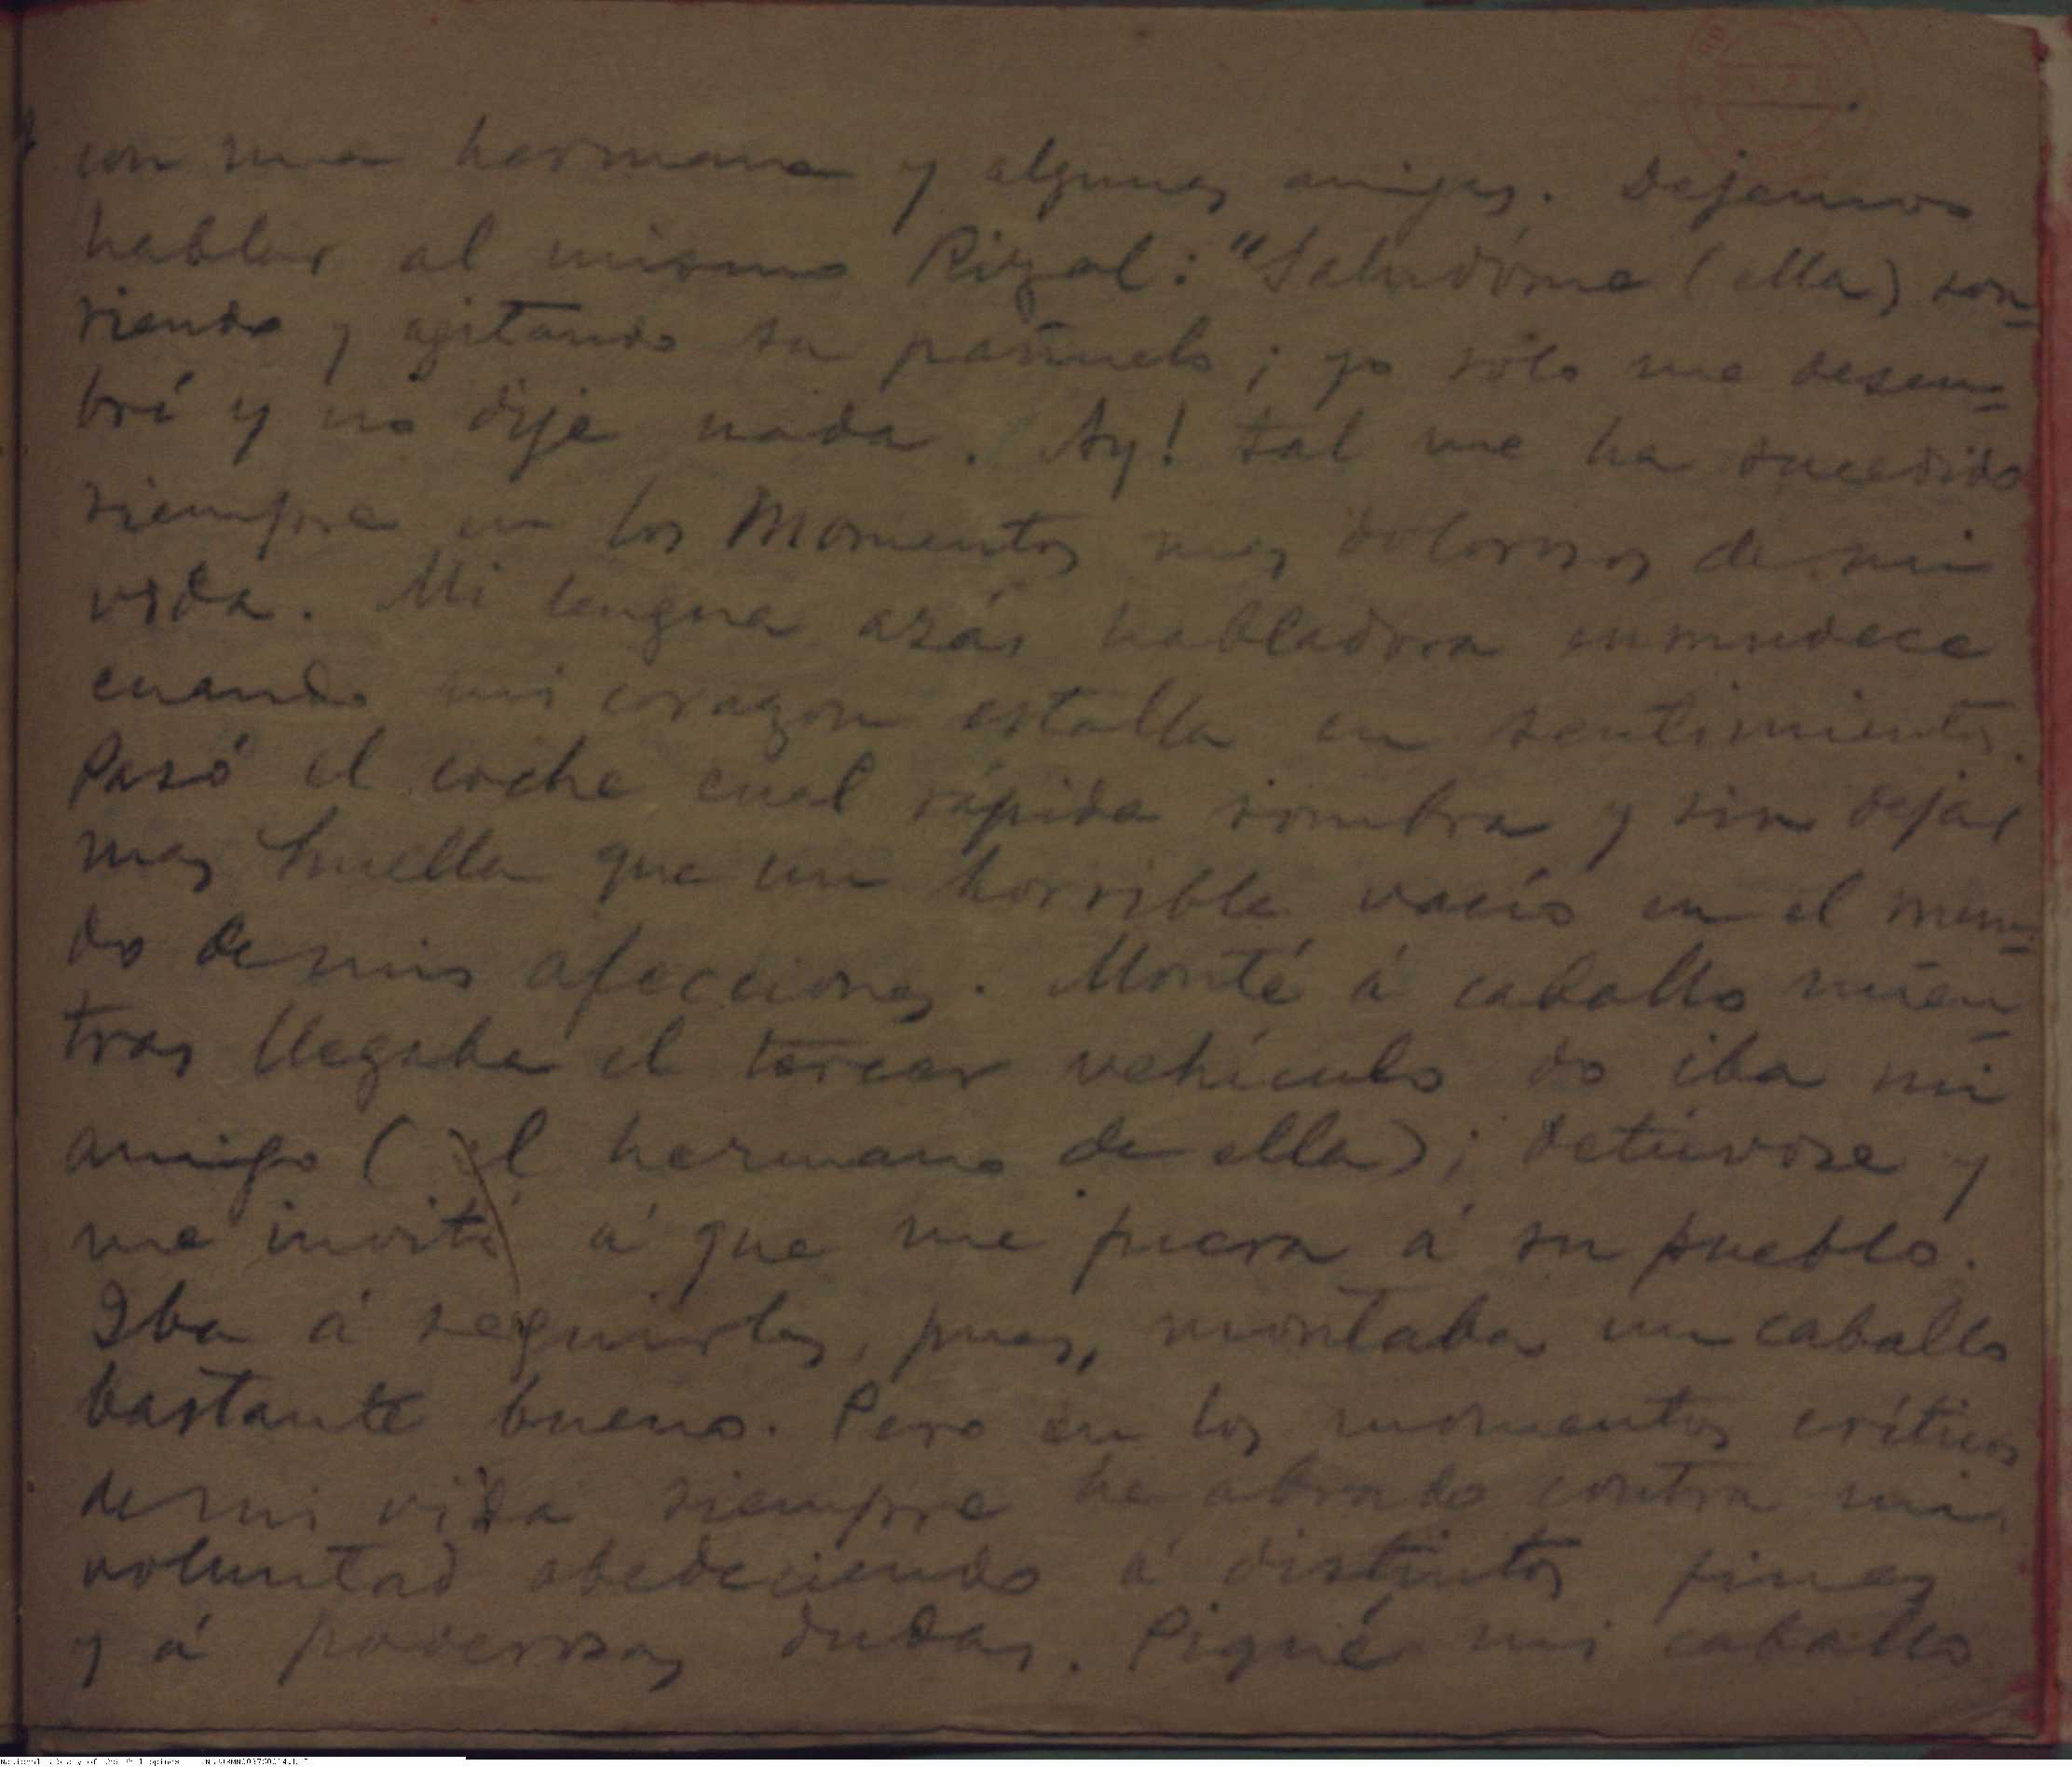 con una hermana y algunas amigas. Dejemos
hablar al mismo Rizal: "Saludóme (ella) son-
riendo y agitando su pañuelo; yo sólo me descu-
brí y no dije nada. Ay! tal me ha sucedido
siempre en los Momentos mas dolorosos de mi
vida. Mi lengua azás habladora enmudece
cuando mi corazon estalla en sentimientos.
Pasó el coche cual rápida sombra y sin dejar
mas huella que un horrible vacío en el mun-
do de mis afecciones. Monté á caballo mien-
tras llegaba el tercer vehículo do iba mi
amigo (el hermano de ella); detúvose y
me invitó á que me fuera á su pueblo.
Iba á seguirlas, pues, montaba un caballo
bastante bueno. Pero en los momentos críticos
de mi vida siempre he obrado contra mi
voluntad obedeciendo á distintos fines
y á poderosas dudas. Piqué mi caballo
National Library of the Philippines